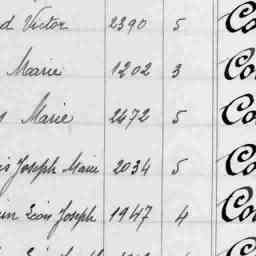 d Victor 2390 5 Co
Marie 1202 3 Co
s Marie 2472 5 Co
is Joseph Marie 2034 5 Co
in Léon Joseph 1947 4 Co